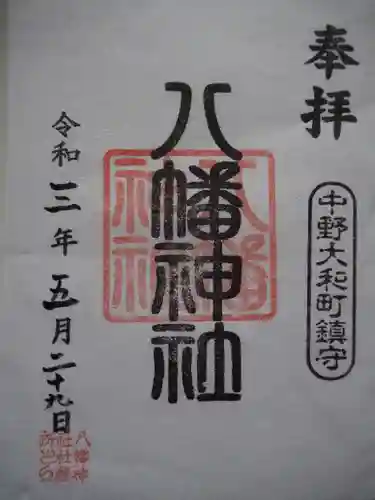 奉拝
中野大和町鎮守
八幡神社
八幡
神社
令和三年五月二十九日
八幡神
社社務
所之印